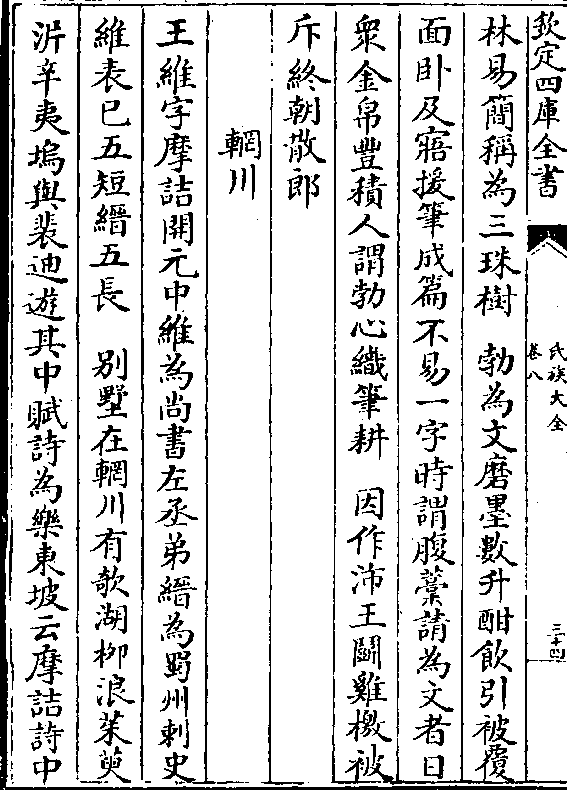 欽定四庫全書
氏族大全
卷八
三十四
林易簡稱為三珠樹　勃為文磨墨數升酣飲引被覆
面卧及寤援筆成篇不易一字時謂腹藁請為文者日
衆金帛豐積人謂勃心織筆耕　因作沛王鬬雞檄被
斥終朝散郎
輞川
王維字摩詰開元中維為尚書左丞弟縉為蜀州刺史
維表已五短縉五長　别墅在輞川有欹湖柳浪茱萸
沜辛夷塢與裴迪遊其中賦詩為樂東坡云摩詰詩中